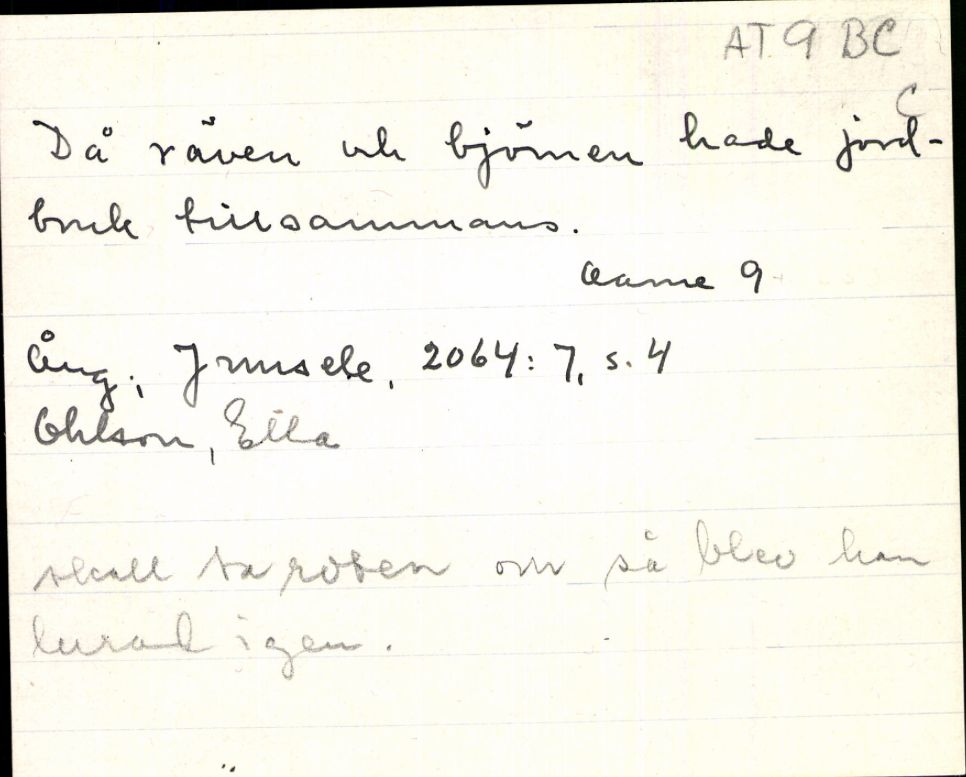 AT 9 BC
C
Då räven och björnen hade jord-
bruk tillsammans.
Aarne 9
Ång., Junsele, 2064: 7, s. 4
Ohlson, Ella
skall ta roten om så blev han
lurad igen.